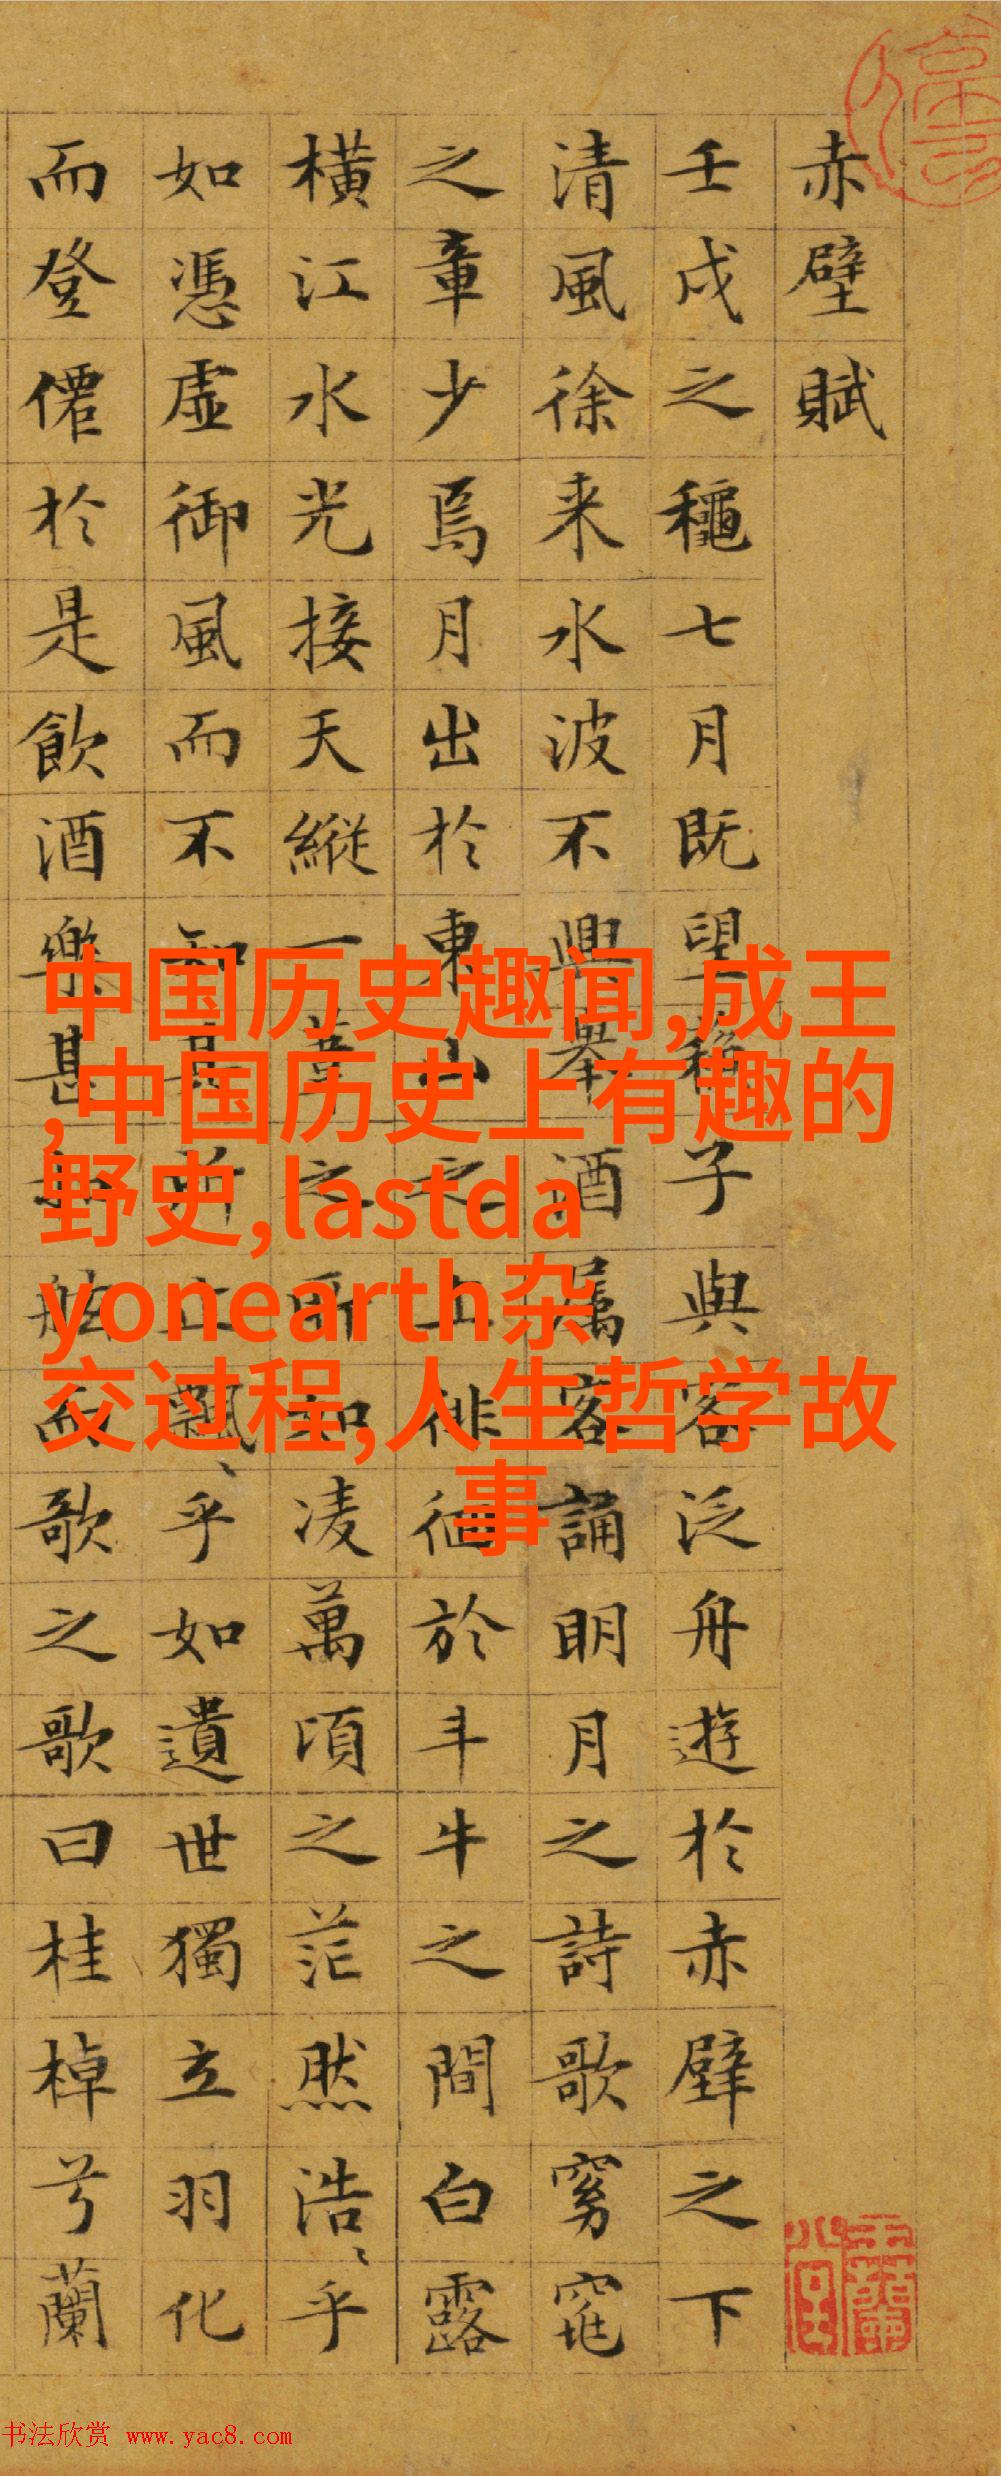 赤壁賦
壬戌之龝七月既望蘓子與客泛舟遊於赤壁之下
清風徐来水波不興舉酒属客誦明月之詩歌窈窕
之章少焉月出於東山之上徘徊於斗牛之間白露
橫江水光接天縱一葦之所如凌萬頃之茫然浩〻乎
如憑虛御風而不知其所止飄〻乎如遺世獨立羽化
而登僊於是飲酒樂甚扣舷而歌之歌曰桂棹兮蘭
中国历史趣闻,成王
,中国历史上有趣的
野史,lastda
yonearth杂
交过程,人生哲学故
事
书法欣赏 www.yac8.com